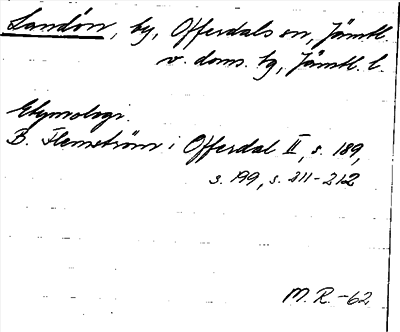 Landön, by, Offerdals sn, Jämtl.
v. doms. bg, Jämtl. l.
Etymologi.
B. Flemström i Offerdal II, s. 189,
s. 199, s. 211-212
M. R. -62